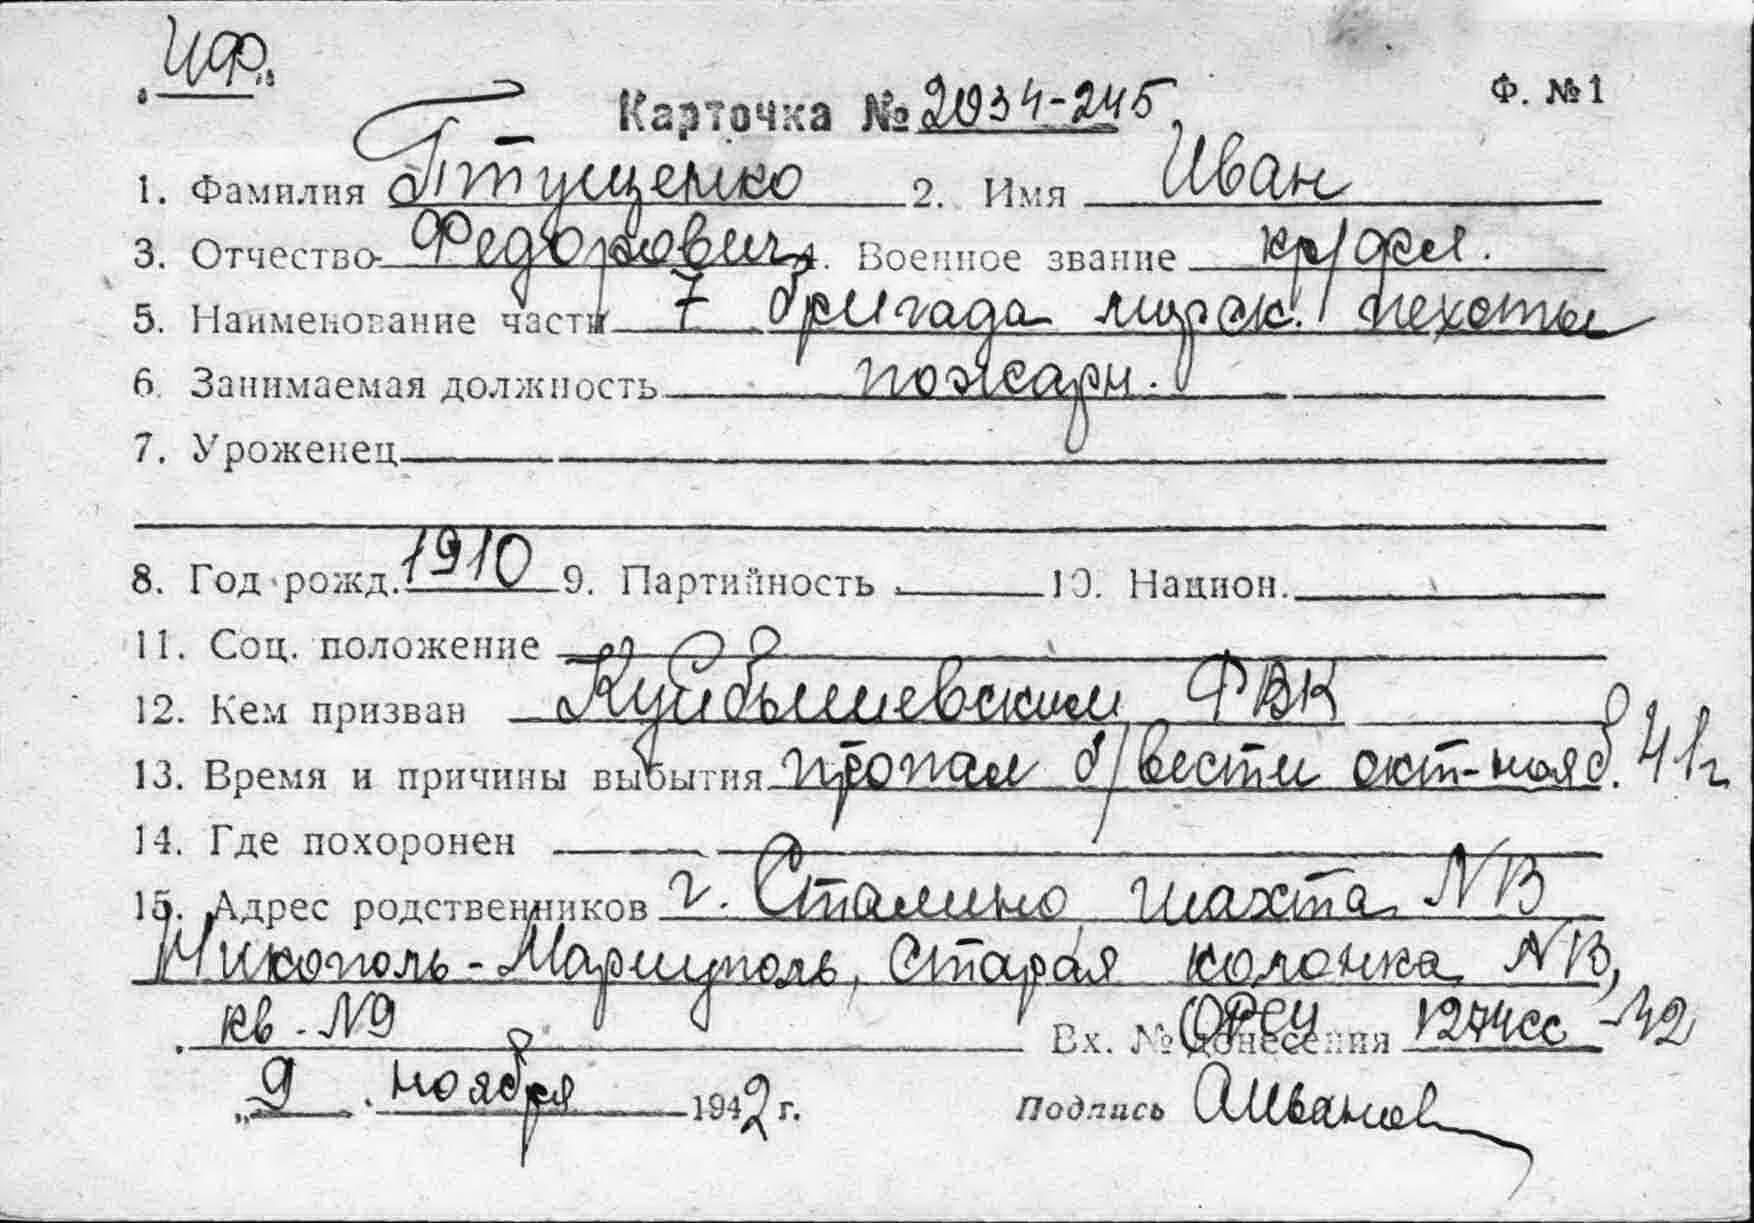 ЧФ
Карточка № 2034-245 Ф. №1
1. Фамилия Птущенко 2. Имя Иван
3. Отчество Федорович 4. Военное звание кр/фл.
5. Наименование части 7 бригада морск. пехоты
6. Занимаемая должность пожарн.
7. Уроженец
8. Год рожд. 1910 9. Партийность 10. Национ.
11. Соц. положение
12. Кем призван Куйбышевским РВК
13. Время и причины выбытия пропал б/вести окт-нояб. 41г
14. Где похоронен
15. Адрес родственников г. Сталино, шахта
Никополь-Мариуполь, Старая колонка
кв. №9 Вх. № донесения 1274сс -42
„ 9 . ноября 1942 г. Подпись АИванов